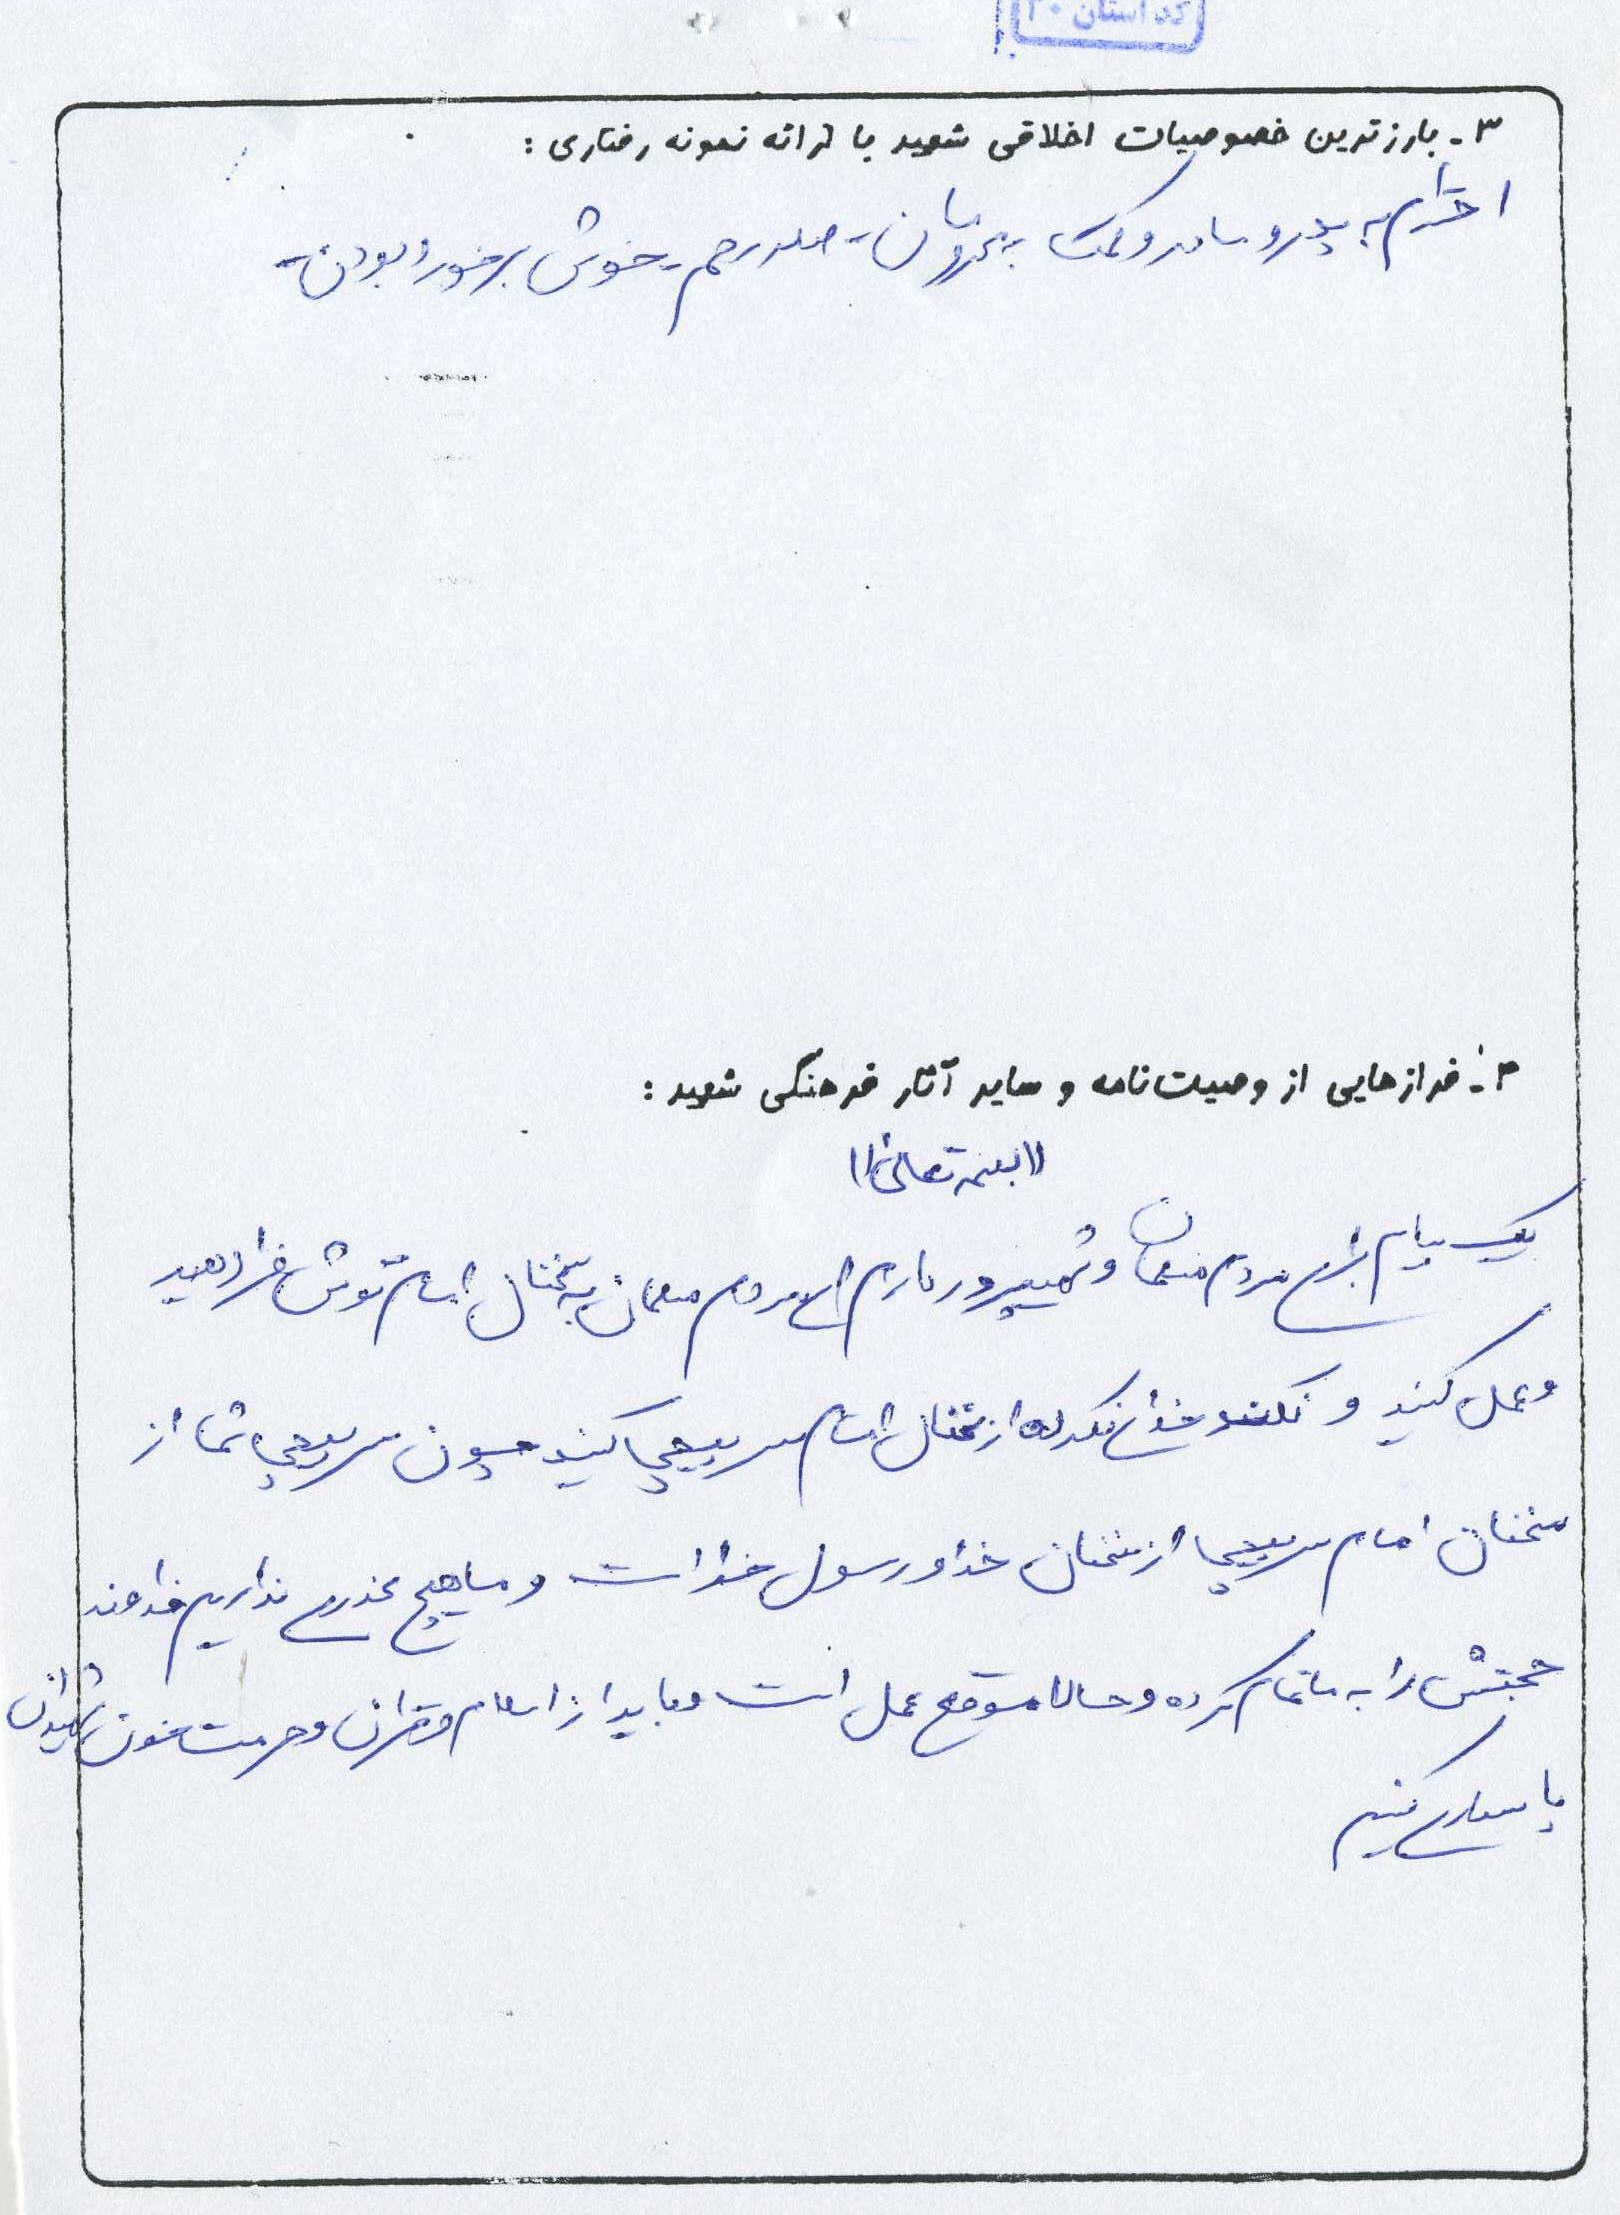 کد استان ۲۰
۳ـ بارزترین خصوصیات اخلاقی شهید با ارائه نمونه رفتاری :
احترام به پدر و مادر و کمک به محرومان ـ صله رحم ـ خوش برخورد بودن ـ
۴ـ فرازهایی از وصیت‌نامه و سایر آثار فرهنگی شهید :
((بسمه تعالی))
یک پیام برای مردم مسلمان و شهیدپرور دارم ای مردم مسلمان به سخنان امام گوش فرا دهید
و عمل کنید و نکند خدای نکرده از سخنان امام سرپیچی کنید چون سرپیچی شما از
سخنان امام سرپیچی از سخنان خدا و رسول خدا است و ما هیچ عذری نداریم خداوند
حجتش را به ما تمام کرده و حالا موقع عمل است و باید از اسلام و قرآن و حرمت خون شهیدان
پاسداری کنیم